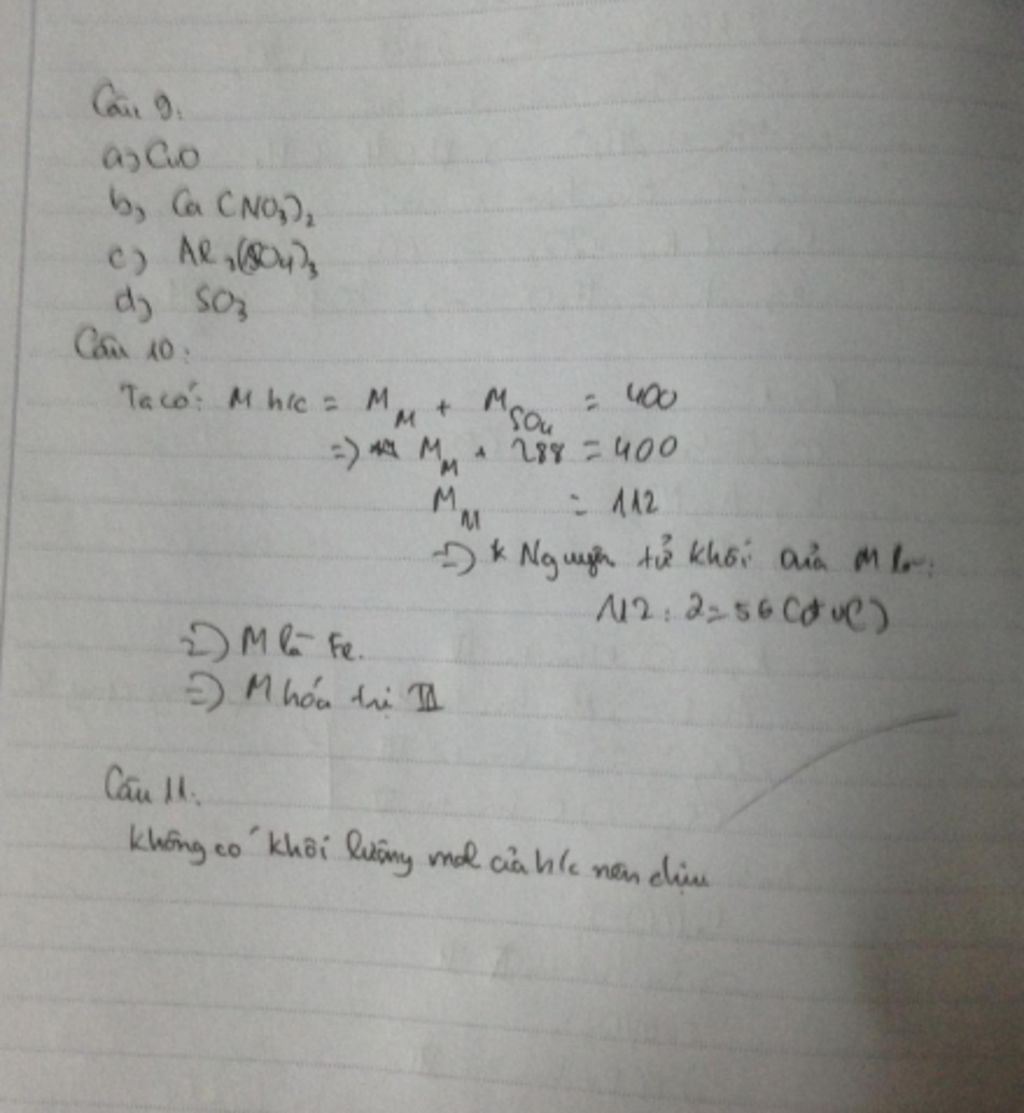 Câu 9:
a) CuO
b) Ca(NO3)2
c) Al2(SO4)3
d) SO3
Câu 10:
Ta có: M h/c = M_M + M_SO4 = 400
=> M_M + 288 = 400
M_M = 112
=> * Nguyên tử khối của M là:
112 : 2 = 56 (đvC)
=> M là Fe.
=> M hóa trị III
Câu 11:
Không có khối lượng mol của h/c nên chịu